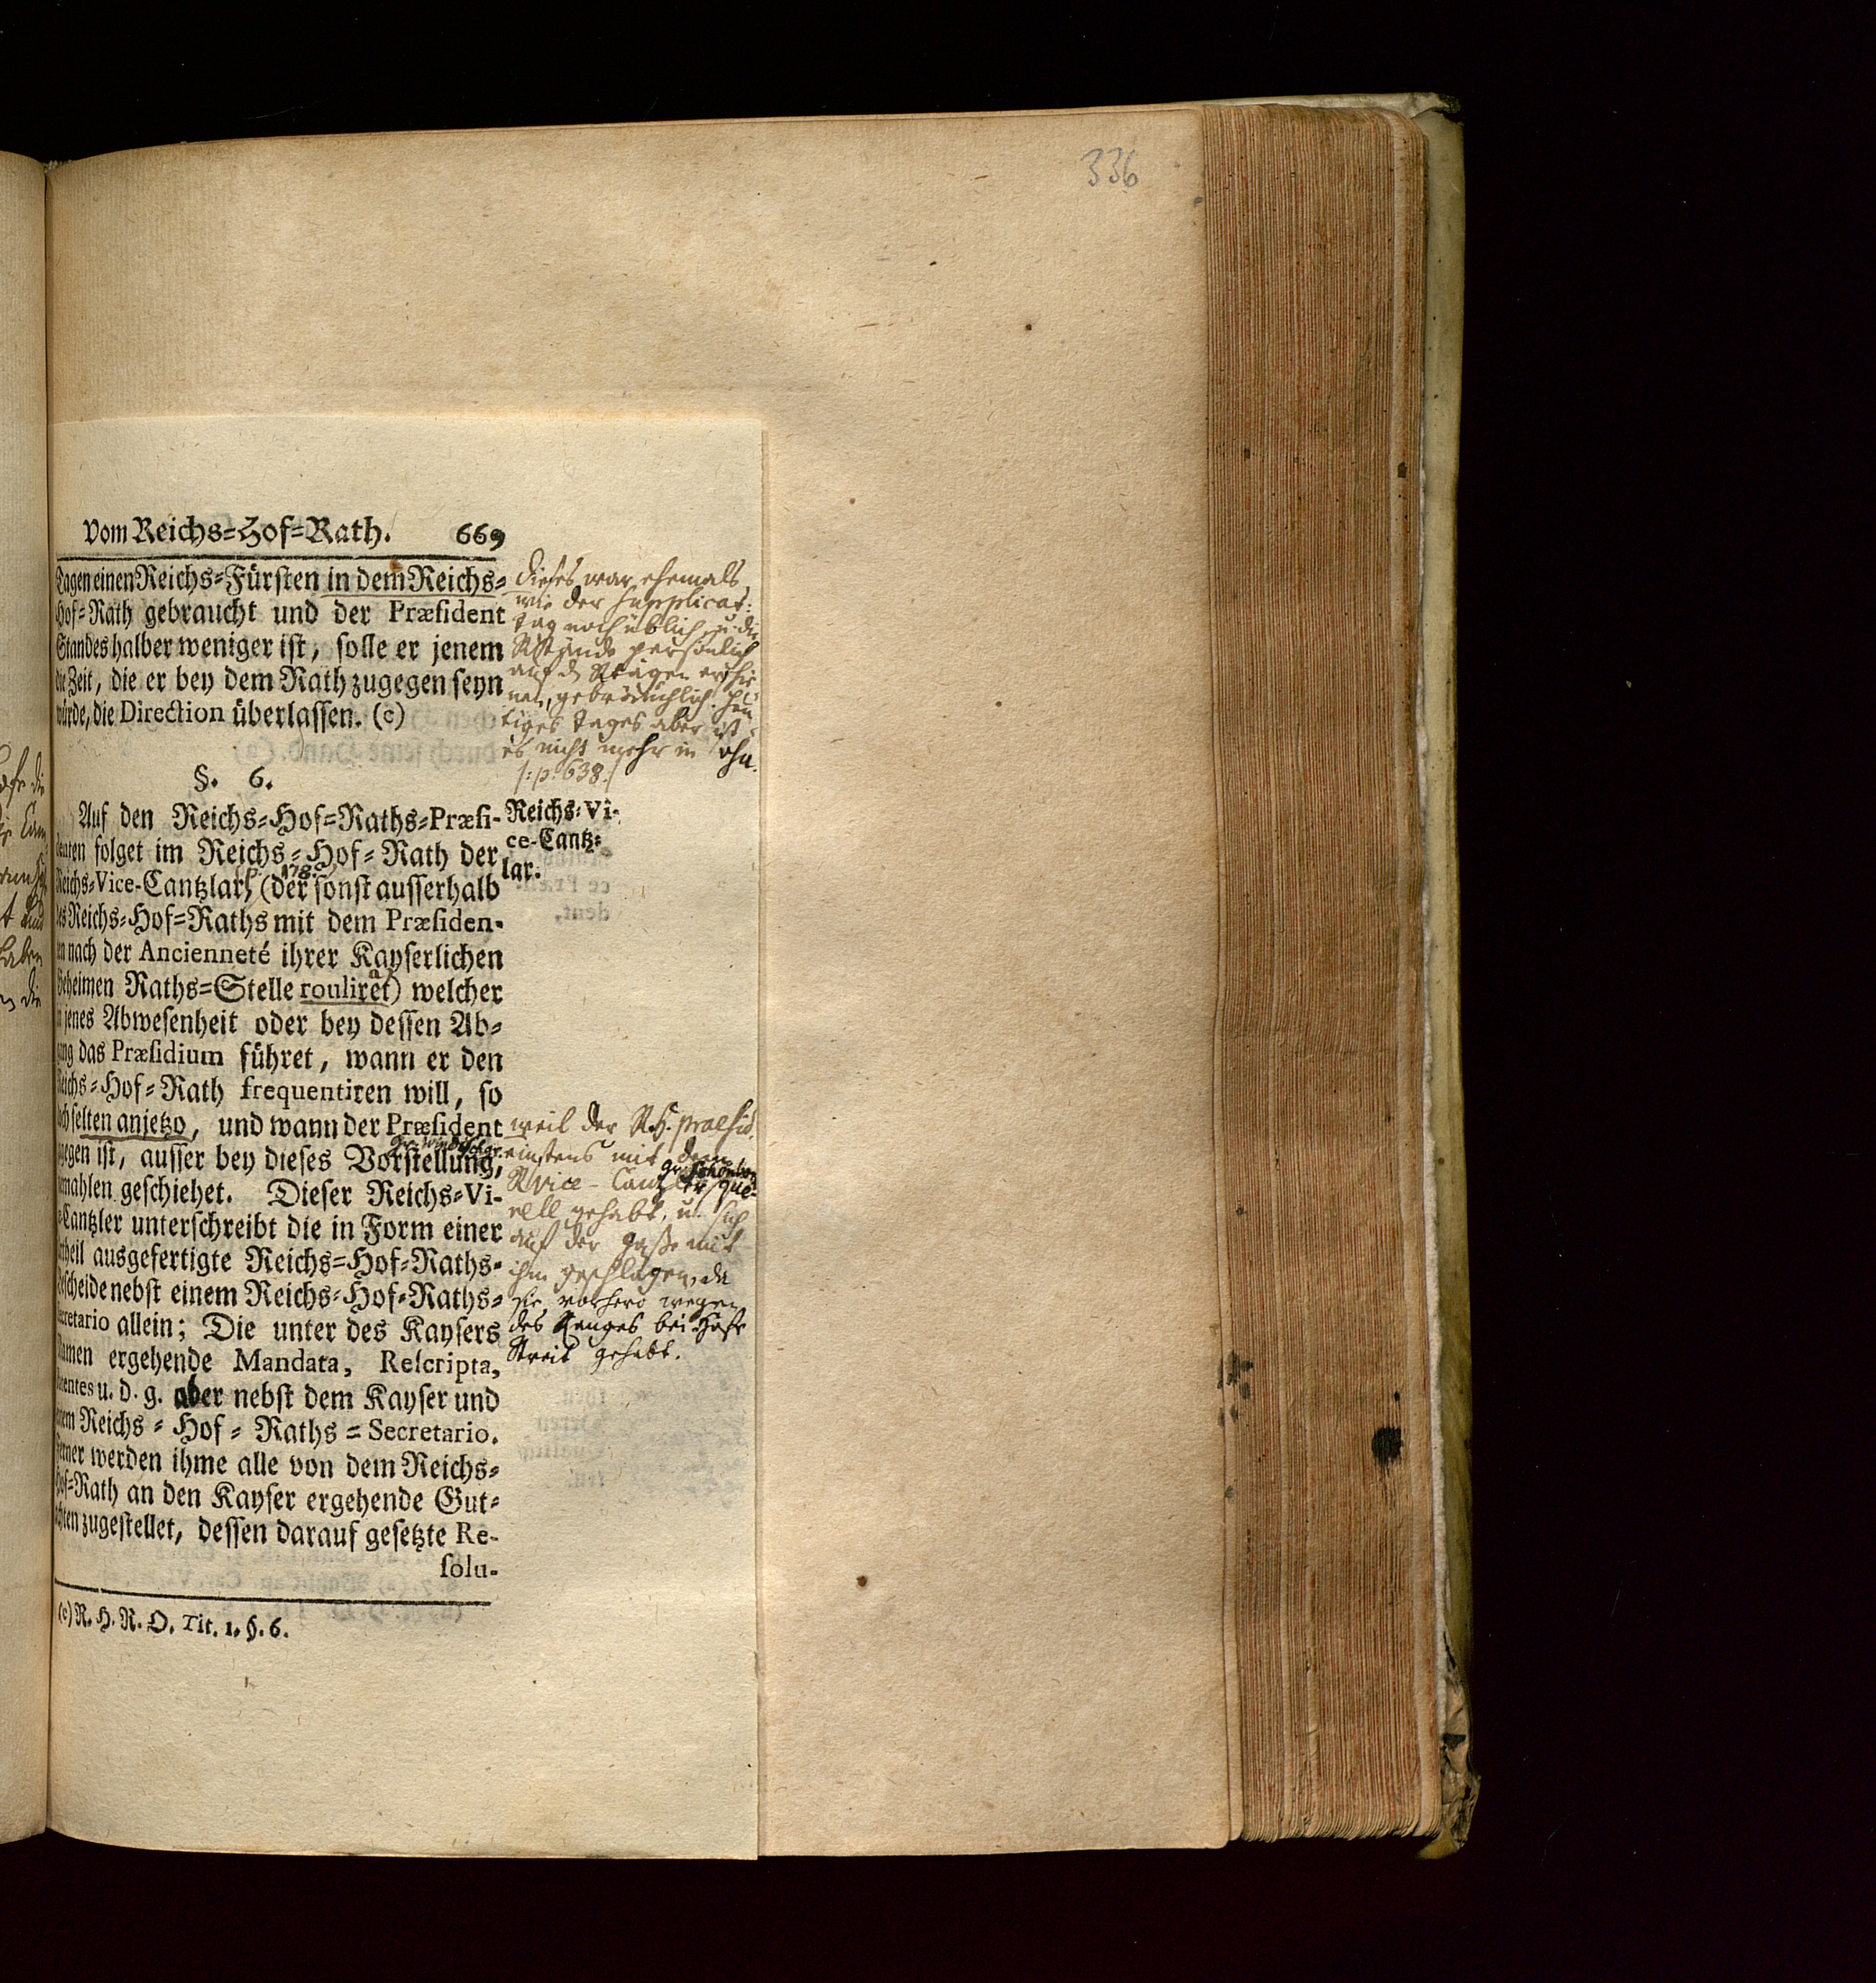 336
Vom Reichs=Hof=Rath. 669
Tagen einen Reichs=Fürsten in dem Reichs=
Hof=Rath gebraucht und der Præsident
Standes halber weniger ist, solle er jenem
die Zeit, die er bey dem Rath zugegen seyn
würde, die Direction überlassen. (c)
dieses war ehemals
wie der supplicat:
tag noch üblich, u. die
RStände persönlich
auf d. Rtägen erschie
nen, gebräuchlich. heu
tiges tages aber ist
es nicht mehr in
/:p. 638./
§. 6.
Auf den Reichs=Hof=Raths=Præsi-
denten folget im Reichs=Hof=Rath der
Reichs=Vice-Cantzlar, (der sonst ausserhalb
des Reichs=Hof=Raths mit dem Præsiden-
ten nach der Ancienneté ihrer Kayserlichen
Geheimen Raths=Stelle rouliret) welcher
in jenes Abwesenheit oder bey dessen Ab=
gang das Præsidium führet, wann er den
Reichs=Hof=Rath frequentiren will, so
doch selten anjetzo, und wann der Præsident
zugegen ist, ausser bey dieses Vorstellung,
niemahlen geschiehet. Dieser Reichs=Vi-
ce-Cantzler unterschreibt die in Form einer
Urtheil ausgefertigte Reichs=Hof=Raths-
Bescheide nebst einem Reichs=Hof=Raths=
Secretario allein; Die unter des Kaysers
Namen ergehende Mandata, Rescripta,
Patentes u. d. g. aber nebst dem Kayser und
einem Reichs=Hof=Raths=Secretario.
Ferner werden ihme alle von dem Reichs=
Hof=Rath an den Kayser ergehende Gut=
achten zugestellet, dessen darauf gesetzte Re-
solu-
Reichs=Vi-
ce-Cantz=
lar.
weil der R.H. præsid.
einstens mit dem
Rvice-Cantzler
que-
rell gehabt, u. sich
auf der gaße mit
ihm geschlagen, da
sie vorhero wegen
des Ranges bei Hofe
Streit gehabt.
(c) R. H. R. O. Tit. 1. §. 6.